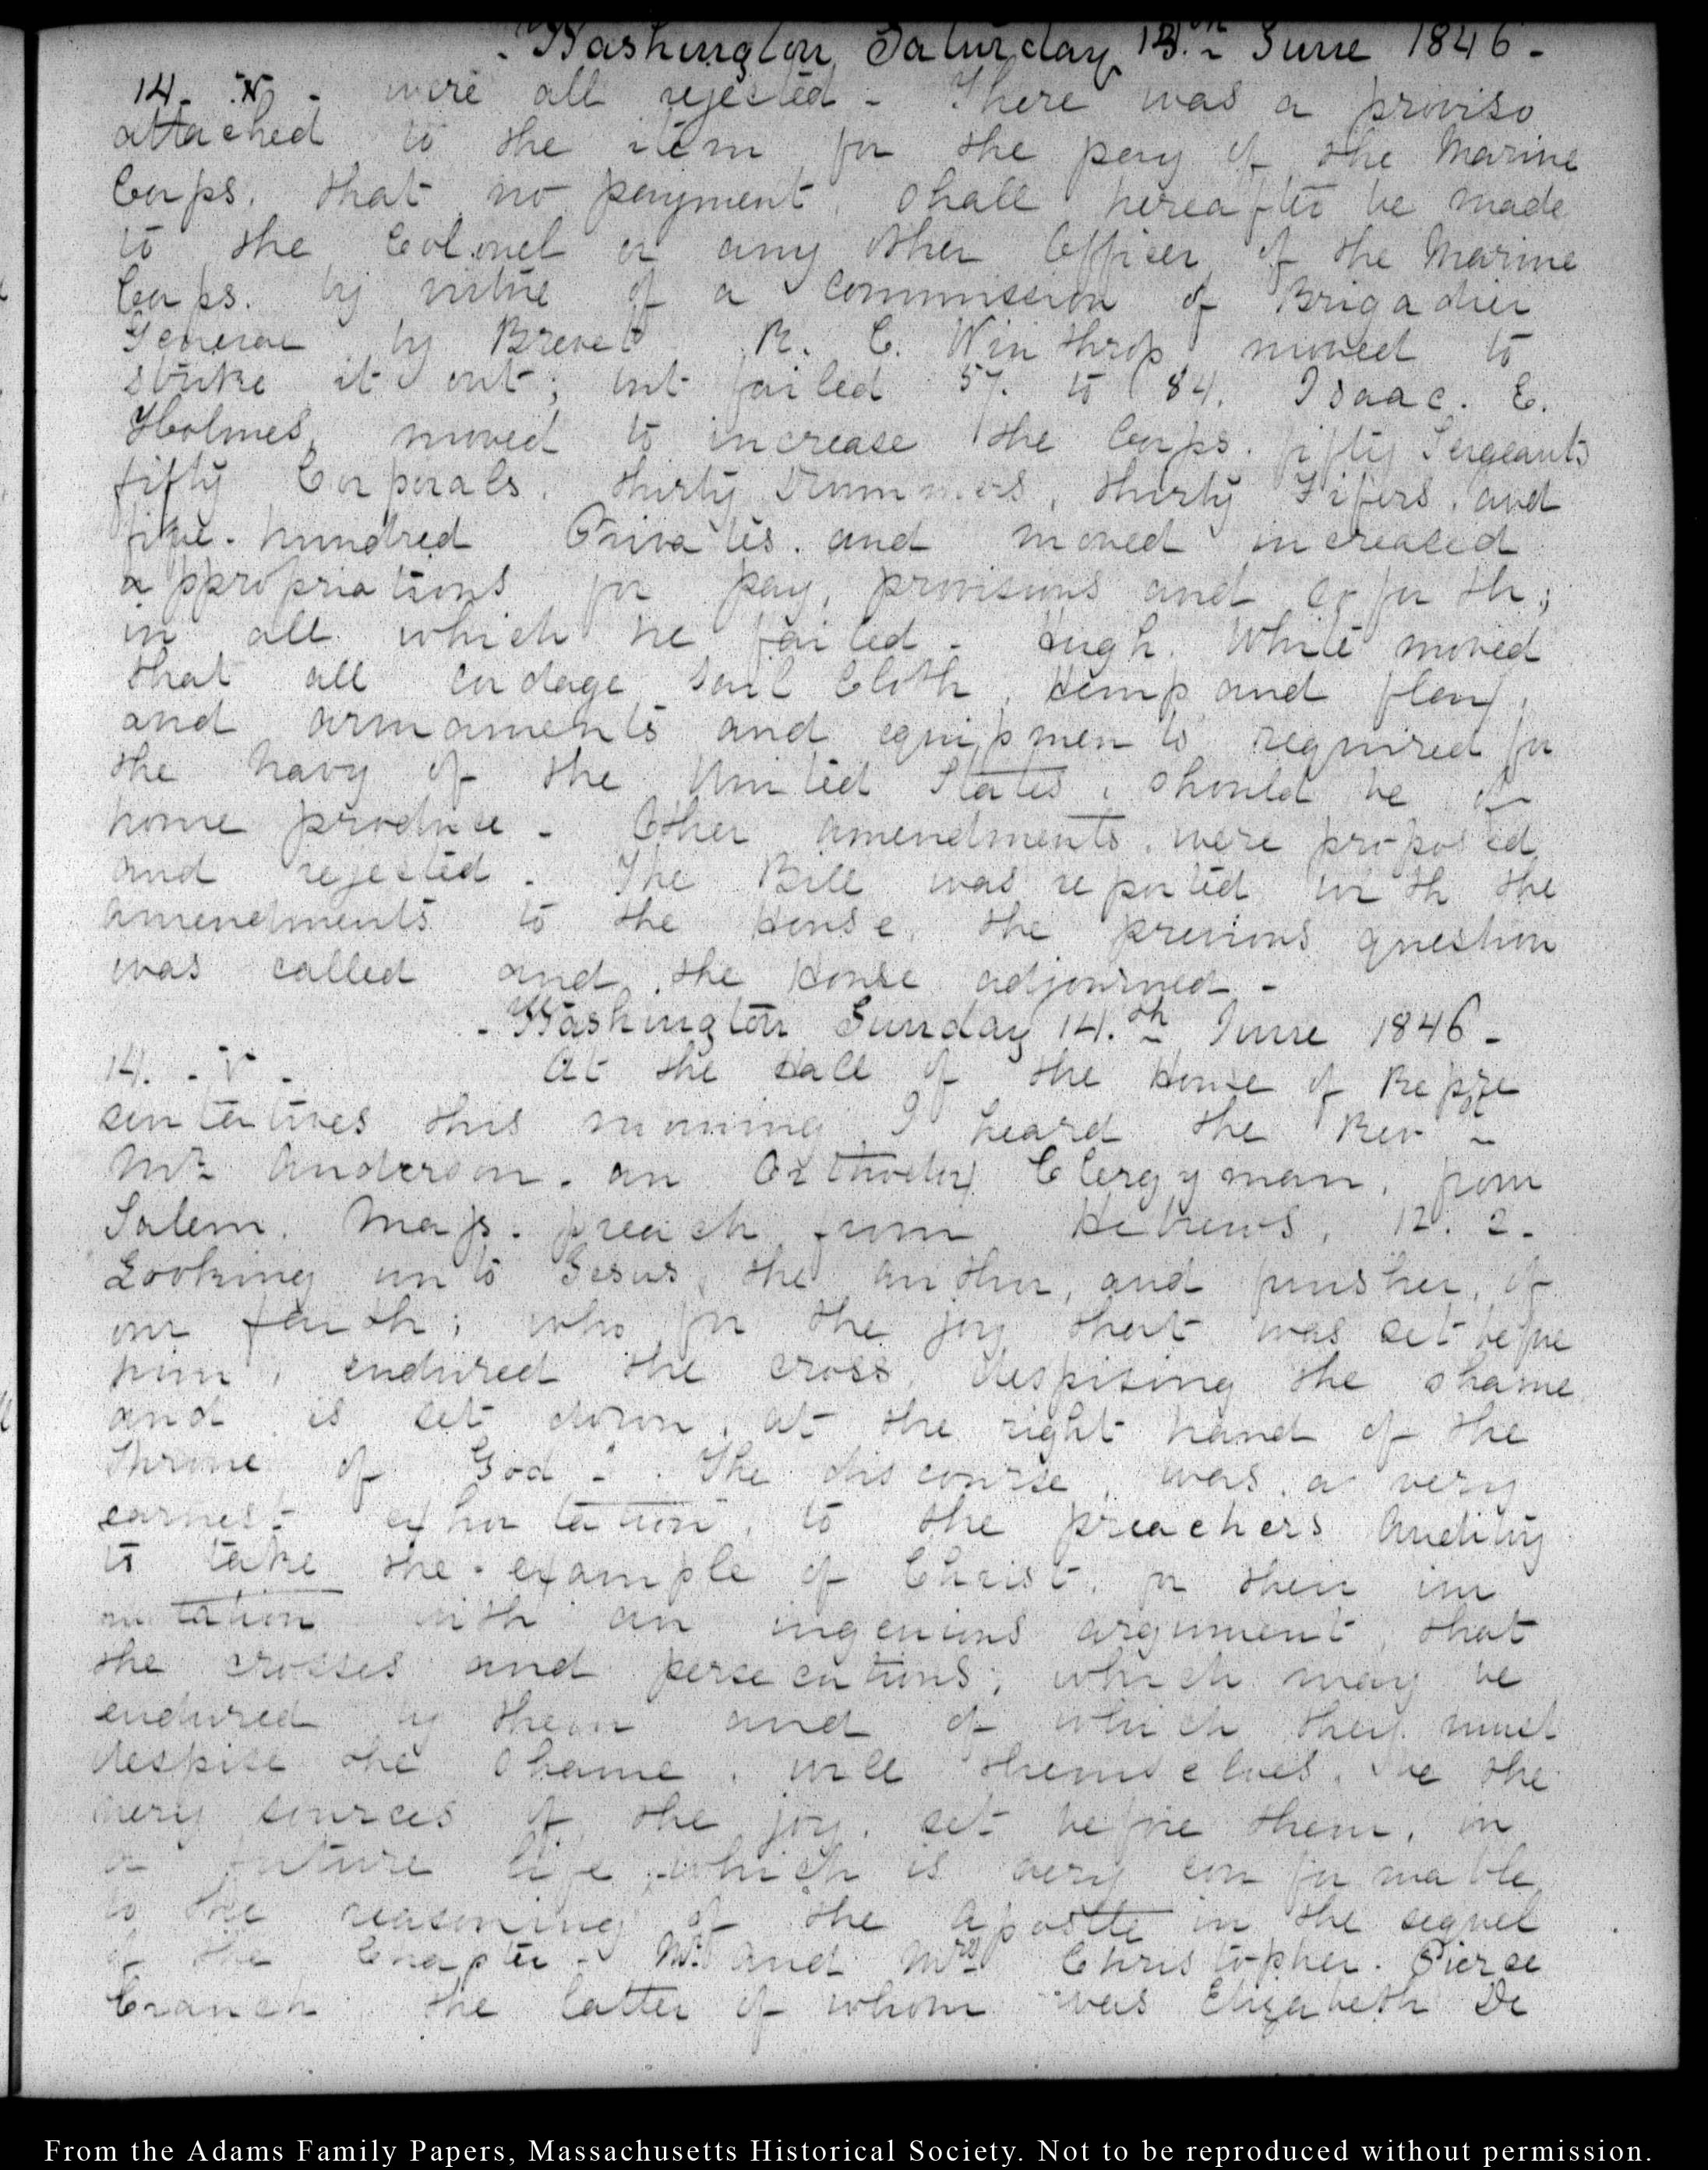 - Washington Saturday 13.th June 1846 -
14. - were all rejected - There was a proviso
attached to the item for the pay of the Marine
Corps, that no payment, shall hereafter be made
to the Colonel or any other Officer of the Marine
Corps. by virtue of a Commission of Brigadier
General by Brevet R. C. Winthrop moved to
strike it out; but failed 57. to 84. Isaac. E.
Holmes, moved to increase the Corps. fifty Sergeants
fifty Corporals. thirty Drummers, thirty Fifers, and
five. hundred Privates. and moved increased
appropriations for pay, provisions and so forth;
in all which he failed - Hugh. White moved
that all cordage, Sail Cloth, Hemp and flax,
and armaments and equipments required for
the Navy of the United States, should be of
home produce - Other amendments, were proposed
and rejected - The Bill was reported with the
amendments to the House, the previous question
was called and the House adjourned -
- Washington Sunday 14.th June 1846 -
14. - V - At the Hall of the House of Repre
sentatives this morning, I heard the Revd
Mr Anderson. an Orthodox Clergyman, from
Salem. Mass. preach from Hebrews, 12. 2.
Looking unto Jesus, the author, and finisher, of
our faith; who for the joy that was set before
him, endured the cross, despising the shame
and is set down, at the right hand of the
Throne of God -. The discourse, was a very
earnest exhortation, to the preachers Auditory
to take the example of Christ, for their im
mitation with an ingenious argument, that
the crosses and persecutions; which may be
endured by them and of which they must
despise the shame, will themselves, be the
very sources of the joy, set before them, in
a future life, which is very conformable
to the reasoning of the Apostle in the sequel
of the Chapter - Mr. and Mrs Christopher. Pierce
Cranch, the latter of whom was Elizabeth De
From the Adams Family Papers, Massachusetts Historical Society. Not to be reproduced without permission.